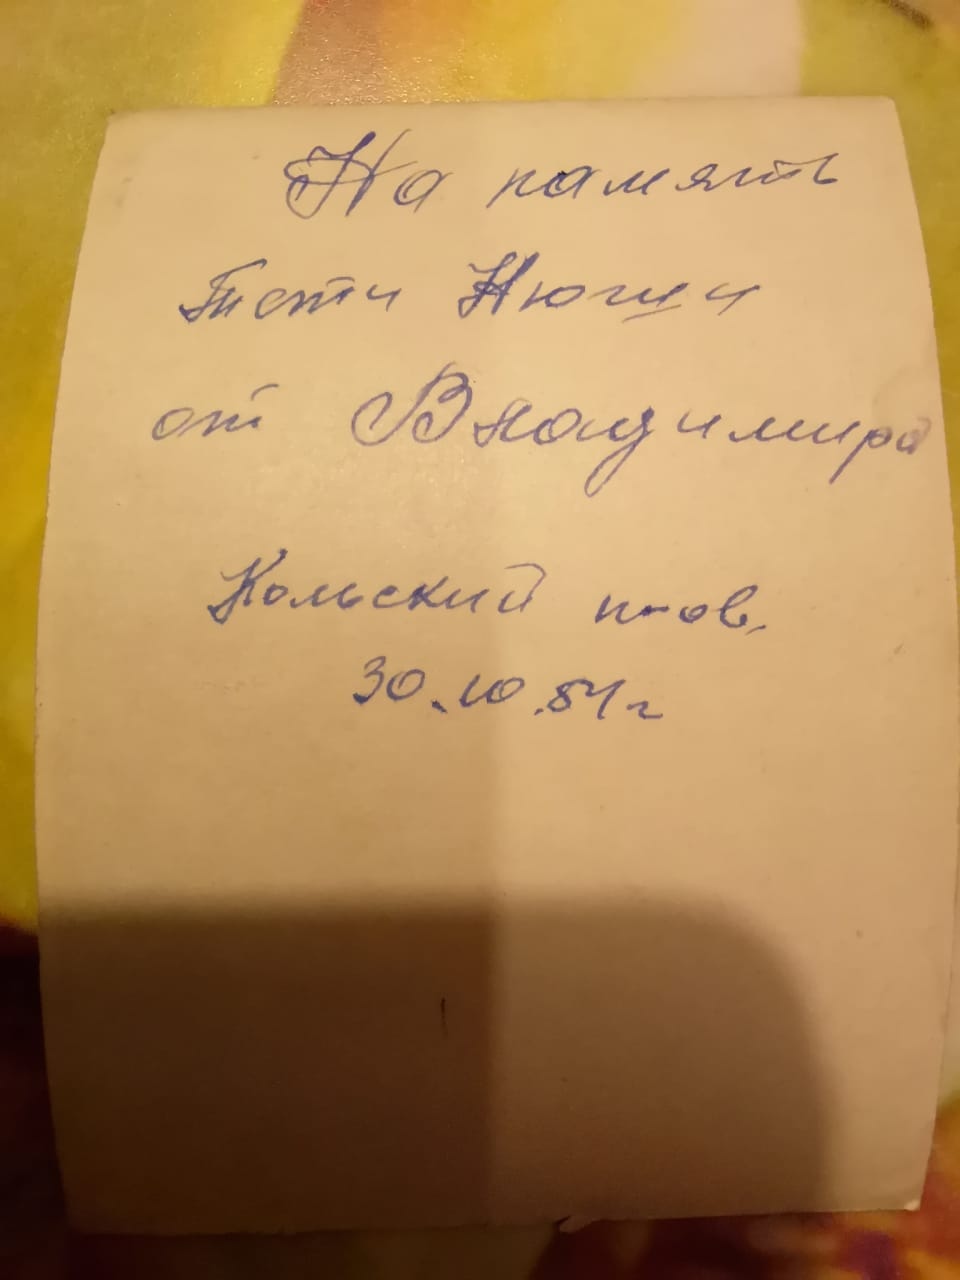 На память
Тети Нюши
от Владимира
Кольский п-ов.
30.10.84г